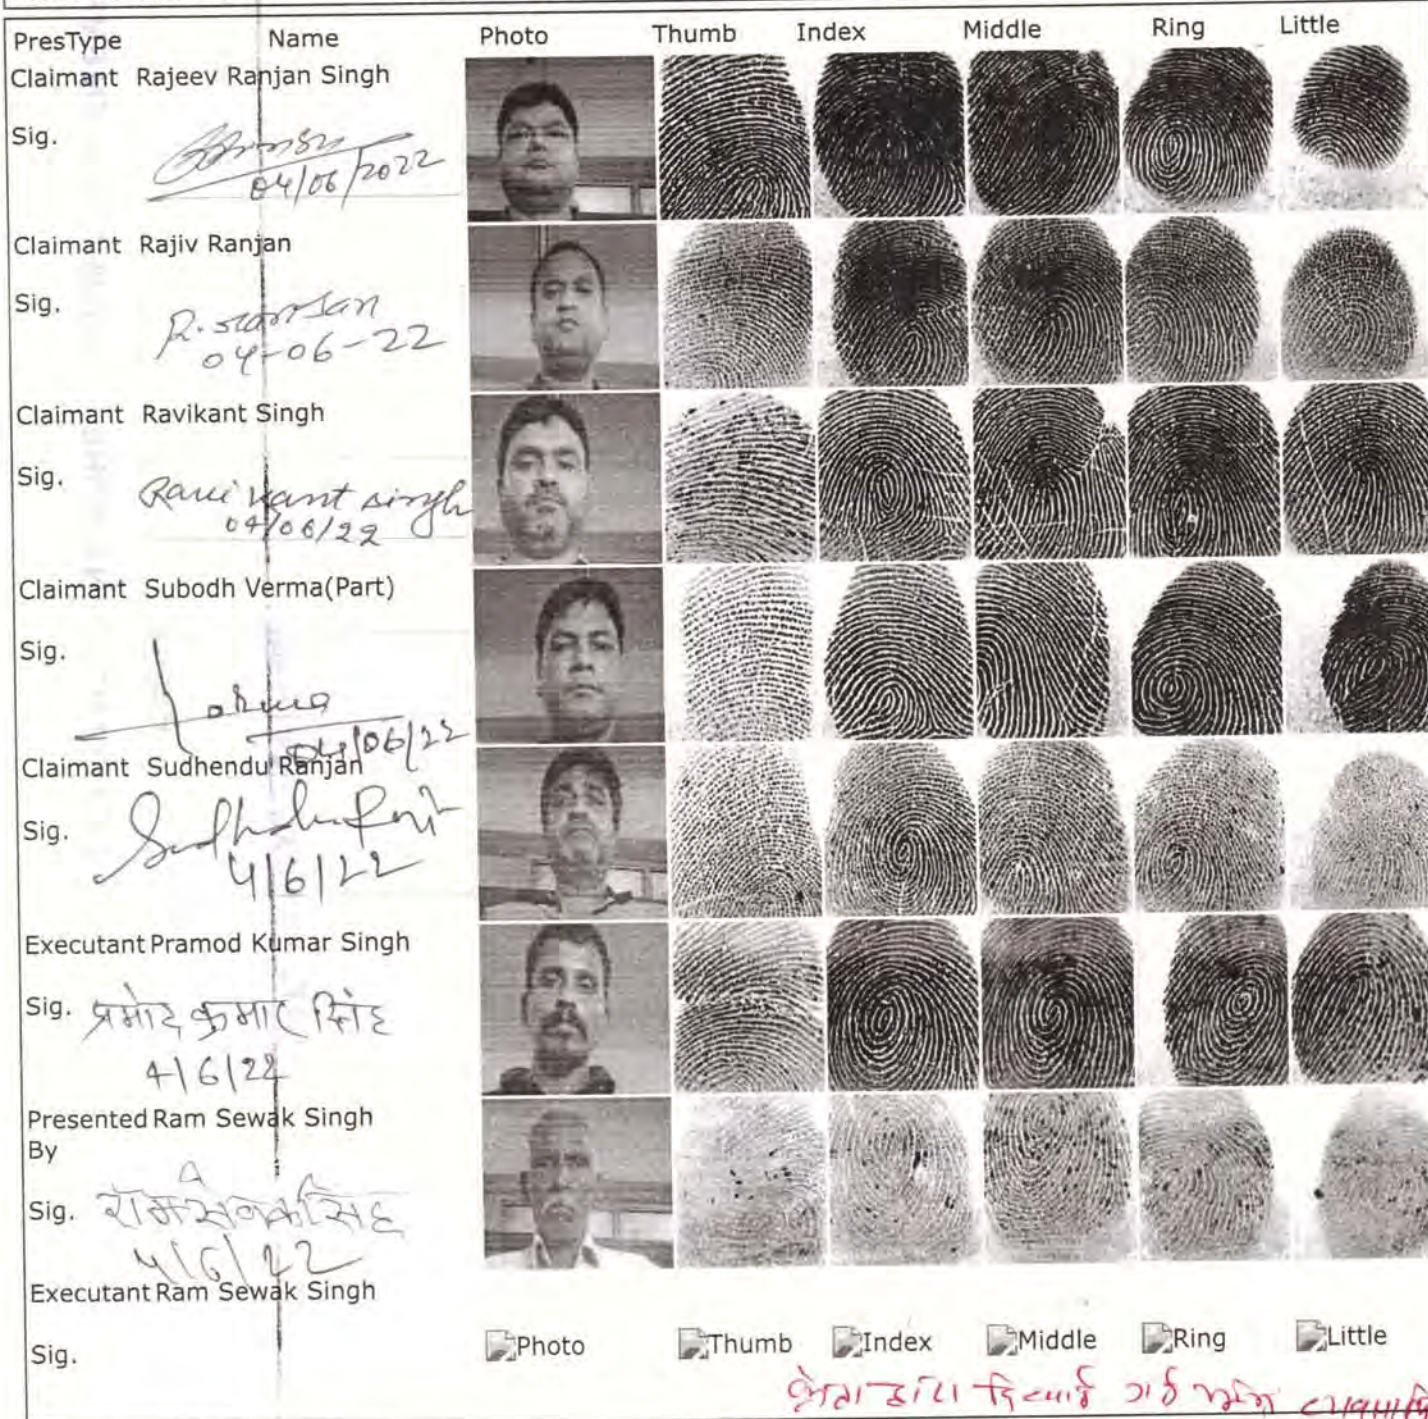 PresType Name Photo Thumb Index Middle Ring Little
Claimant Rajeev Ranjan Singh
Sig.
04/06/2022
Claimant Rajiv Ranjan
Sig.
R. ranjan
04-06-22
Claimant Ravikant Singh
Sig.
Ravi kant singh
04/06/22
Claimant Subodh Verma(Part)
Sig.
04/06/22
Claimant Sudhendu Ranjan
Sig.
4/6/22
Executant Pramod Kumar Singh
Sig. प्रमोद कुमार सिंह
4/6/22
Presented Ram Sewak Singh
By
Sig. रामसेवक सिंह
4/6/22
Executant Ram Sewak Singh
Photo Thumb Index Middle Ring Little
Sig.